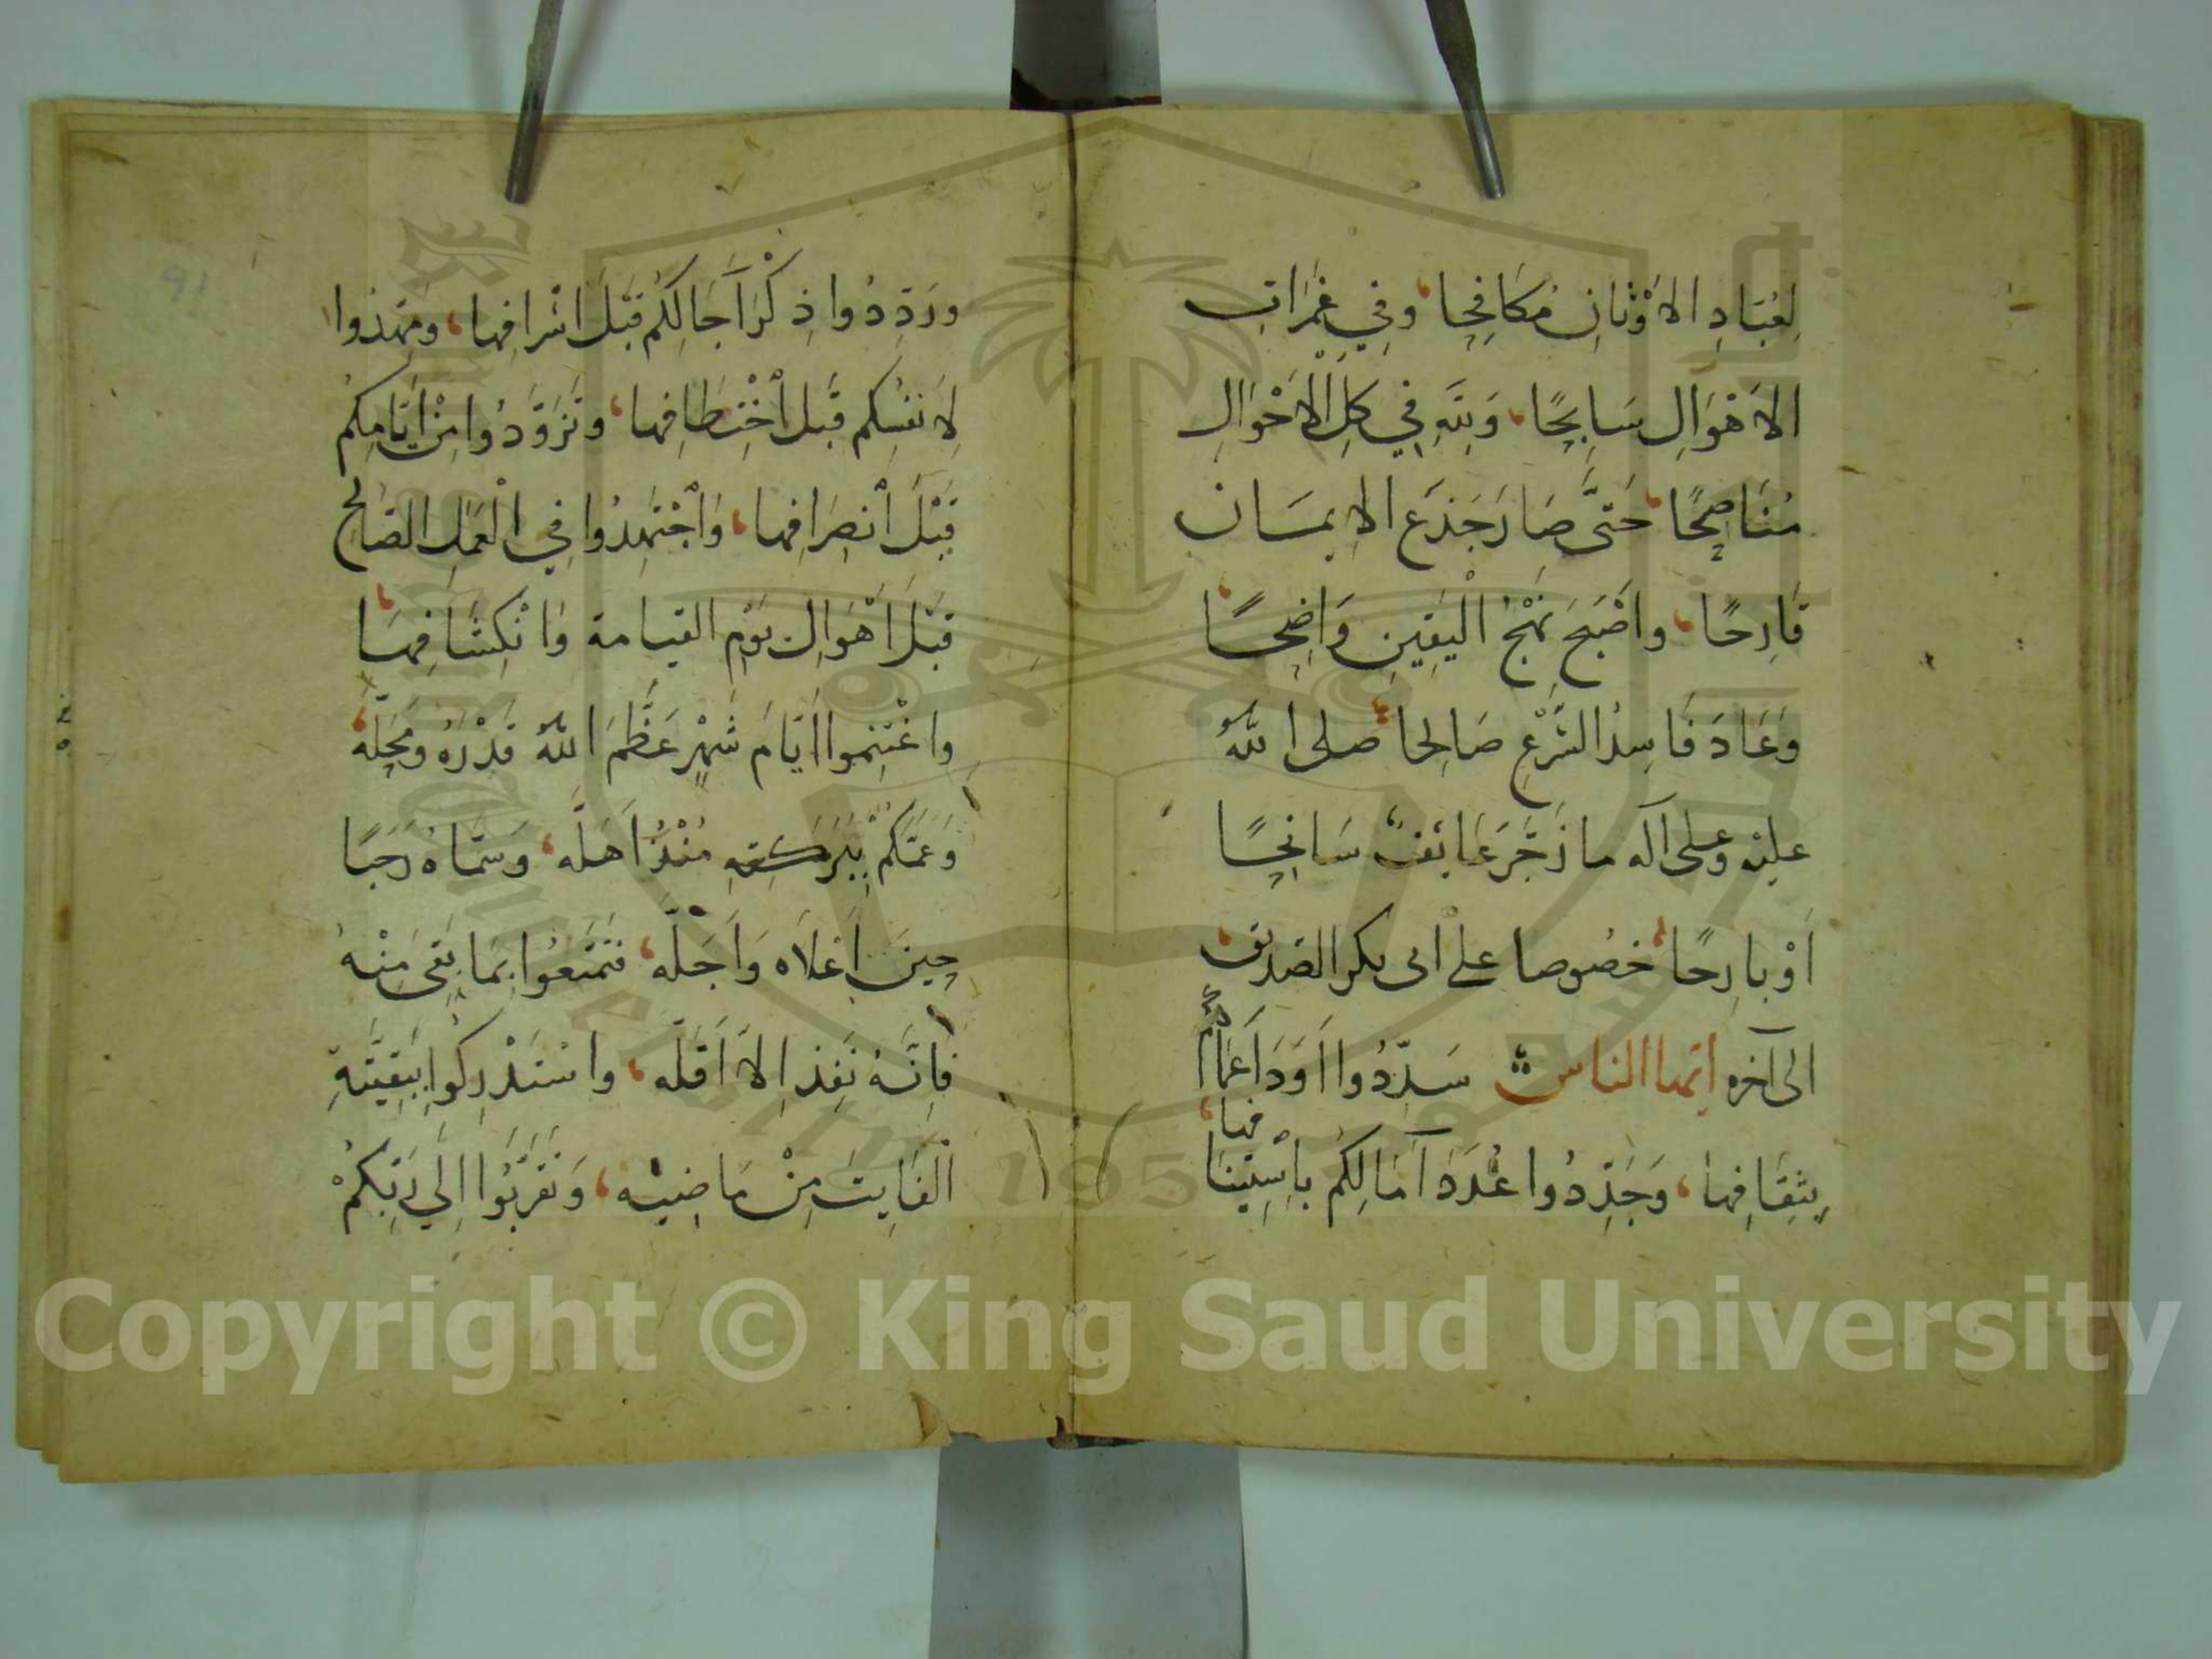 لِعُبَادِ الاَوْثَانِ مُكَافِحًا، وَفِي غَمَرَاتِ
الاَهْوَالِ سَابِحًا، وَلِلَّهِ فِي كُلِّ الْأَحْوَالِ
مُنَاصِحًا، حَتَّى صَارَ جَذَعَ الاِيمَان
قَارِحًا، وَاَصْبَحَ نَهْجُ الْيَقِينِ وَاضِحًا،
وَعَادَ فَاسِدُ الشَّرْعِ صَالِحًا، صلى اللهُ
عليْهِ وعلى آله ما زَجَرَ عَائِفٌ سَانِحًا
اَوْ بارِحًا، خُصُوصا على ابى بكر الصديق
الى آخره ايها الناس سَدِّدُوا اَوَدَ اَعْمَالكم
بِثِقَافِهَا، وَجَدِّدُوا عُدَدَ آمَالِكُم بِاسْتِينَا
فها،
وَرَدِّدُوا ذِكْرَ آجَالِكُم قَبْلَ اشْرَافِهَا، وَمَهِّدُوا
لِاَنفُسِكُم قَبْلَ اخْتِطَافِهَا، وَتَزَوَّدُوا مِنْ اَيَّامِكُم
قَبْلَ انْصِرَافِهَا، وَاجْتَهِدُوا فِي الْعَمَلِ الصَّالِحِ
قَبْلَ اَهْوَالِ يَوْمِ القيامة وَانْكِشَافِهَا،
وَاغْتَنِمُوا اَيَّامَ شَهْرٍ عَظَّمَ اللهُ قَدْرَهُ وَمَحَلَّهُ،
وَعَمَّكُمْ بِبَرَكَتِهِ مُنْذُ اَهَلَّه، وَسَمَّاهُ رَجَبًا
حِينَ اَعْلَاه وَاَجَلَّه، فَتَمَتَّعُوا بِمَا بَقِيَ مِنْهُ
فَاِنَّهُ نَفِذَ اِلاَّ اَقَلَّه، وَاسْتَدْرِكُوا بِبَقِيَّتِهِ
الْفَايِتَ مِنْ مَاضِيْه، وَتَقَرَّبُوا اِلَى رَبِّكُمْ
91
Copyright © King Saud University